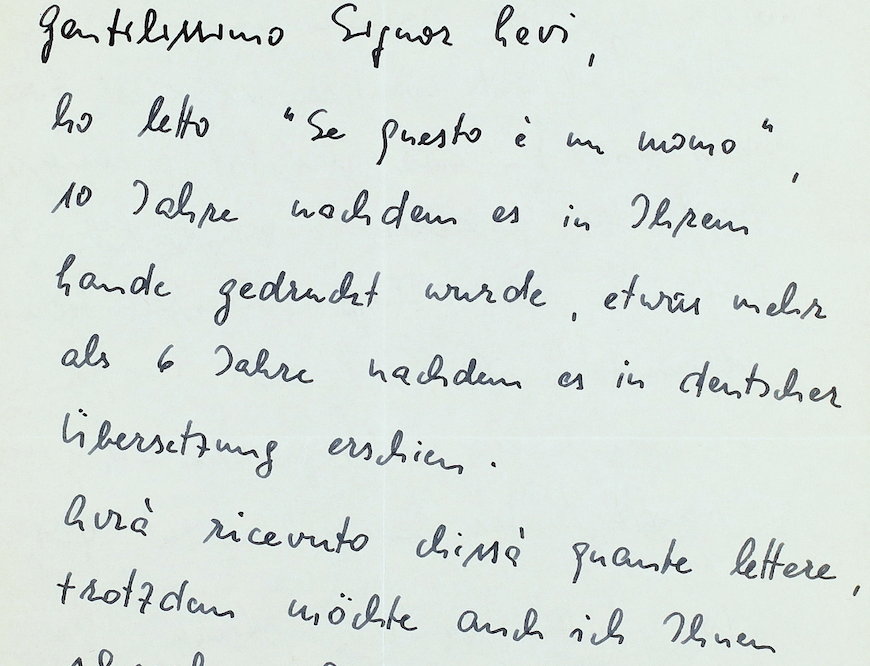 Gentilissimo Signor Levi,
ho letto "Se questo è un uomo",
10 Jahre nachdem es in Ihrem
Lande gedruckt wurde, etwas mehr
als 6 Jahre nachdem es in deutscher
Übersetzung erschien.
Avrà ricevuto chissà quante lettere,
trotzdem möchte auch ich Ihnen